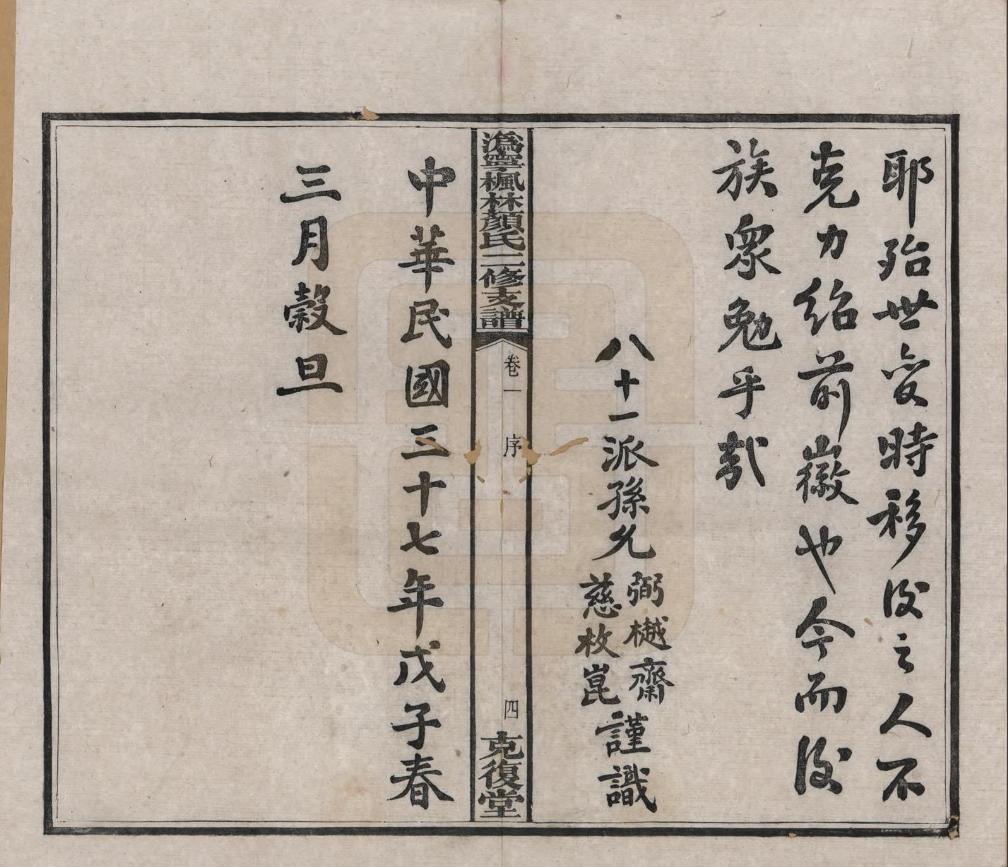 耶殆世变時移後之人不
克力紹前徽也今而後
族衆勉乎哉
八十一派孫允弼樾齋慈枚崑謹識
溈寧楓林顏氏二修支譜
卷一
序
四
克復堂
中華民國三十七年戊子春
三月穀旦